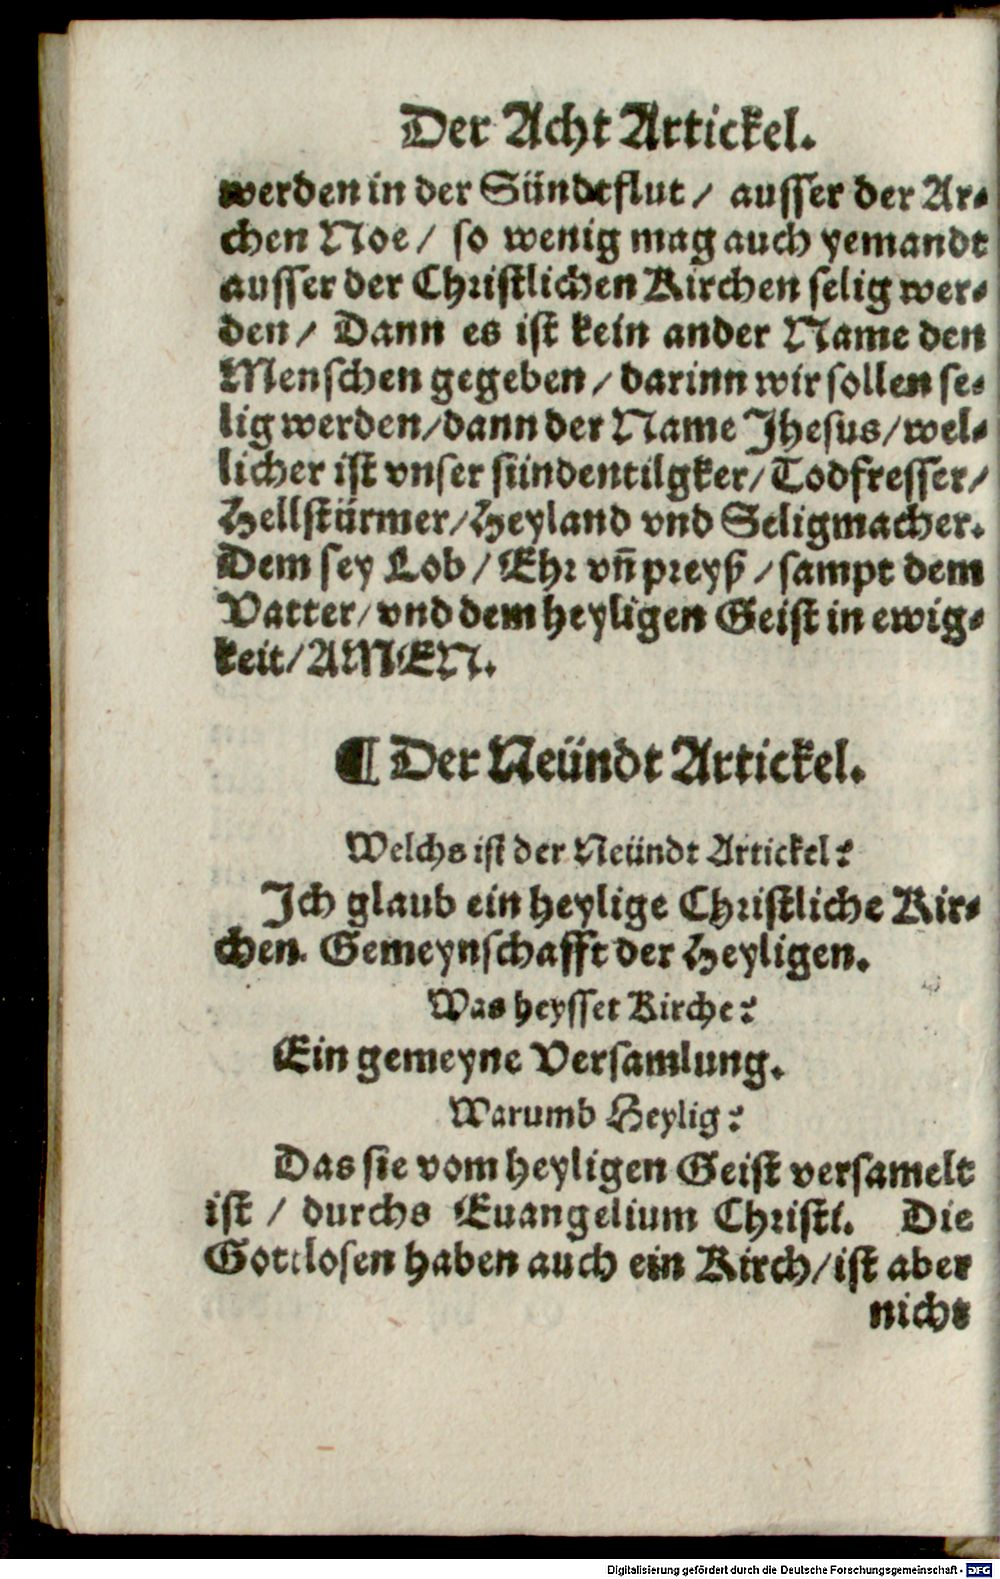 Der Acht Artickel.
werden in der Sündtflut / ausser der Ar-
chen Noe / so wenig mag auch yemandt
ausser der Christlichen Kirchen selig wer-
den / Dann es ist kein ander Name den
Menschen gegeben / darinn wir sollen se-
lig werden / dann der Name Jhesus / wel-
licher ist vnser sündentilgker / Todfresser /
Hellstürmer / Heyland vnd Seligmacher.
Dem sey Lob / Ehr vn̄ preyß / sampt dem
Vatter / vnd dem heyligen Geist in ewig-
keit / AMEN.
¶ Der Neündt Artickel.
Welchs ist der Neündt Artickel?
Ich glaub ein heylige Christliche Kir-
chen. Gemeynschafft der Heyligen.
Was heysset Kirche?
Ein gemeyne Versamlung.
Warumb Heylig?
Das sie vom heyligen Geist versamelt
ist / durchs Euangelium Christi. Die
Gottlosen haben auch ein Kirch / ist aber
nicht
Digitalisierung gefördert durch die Deutsche Forschungsgemeinschaft - DFG